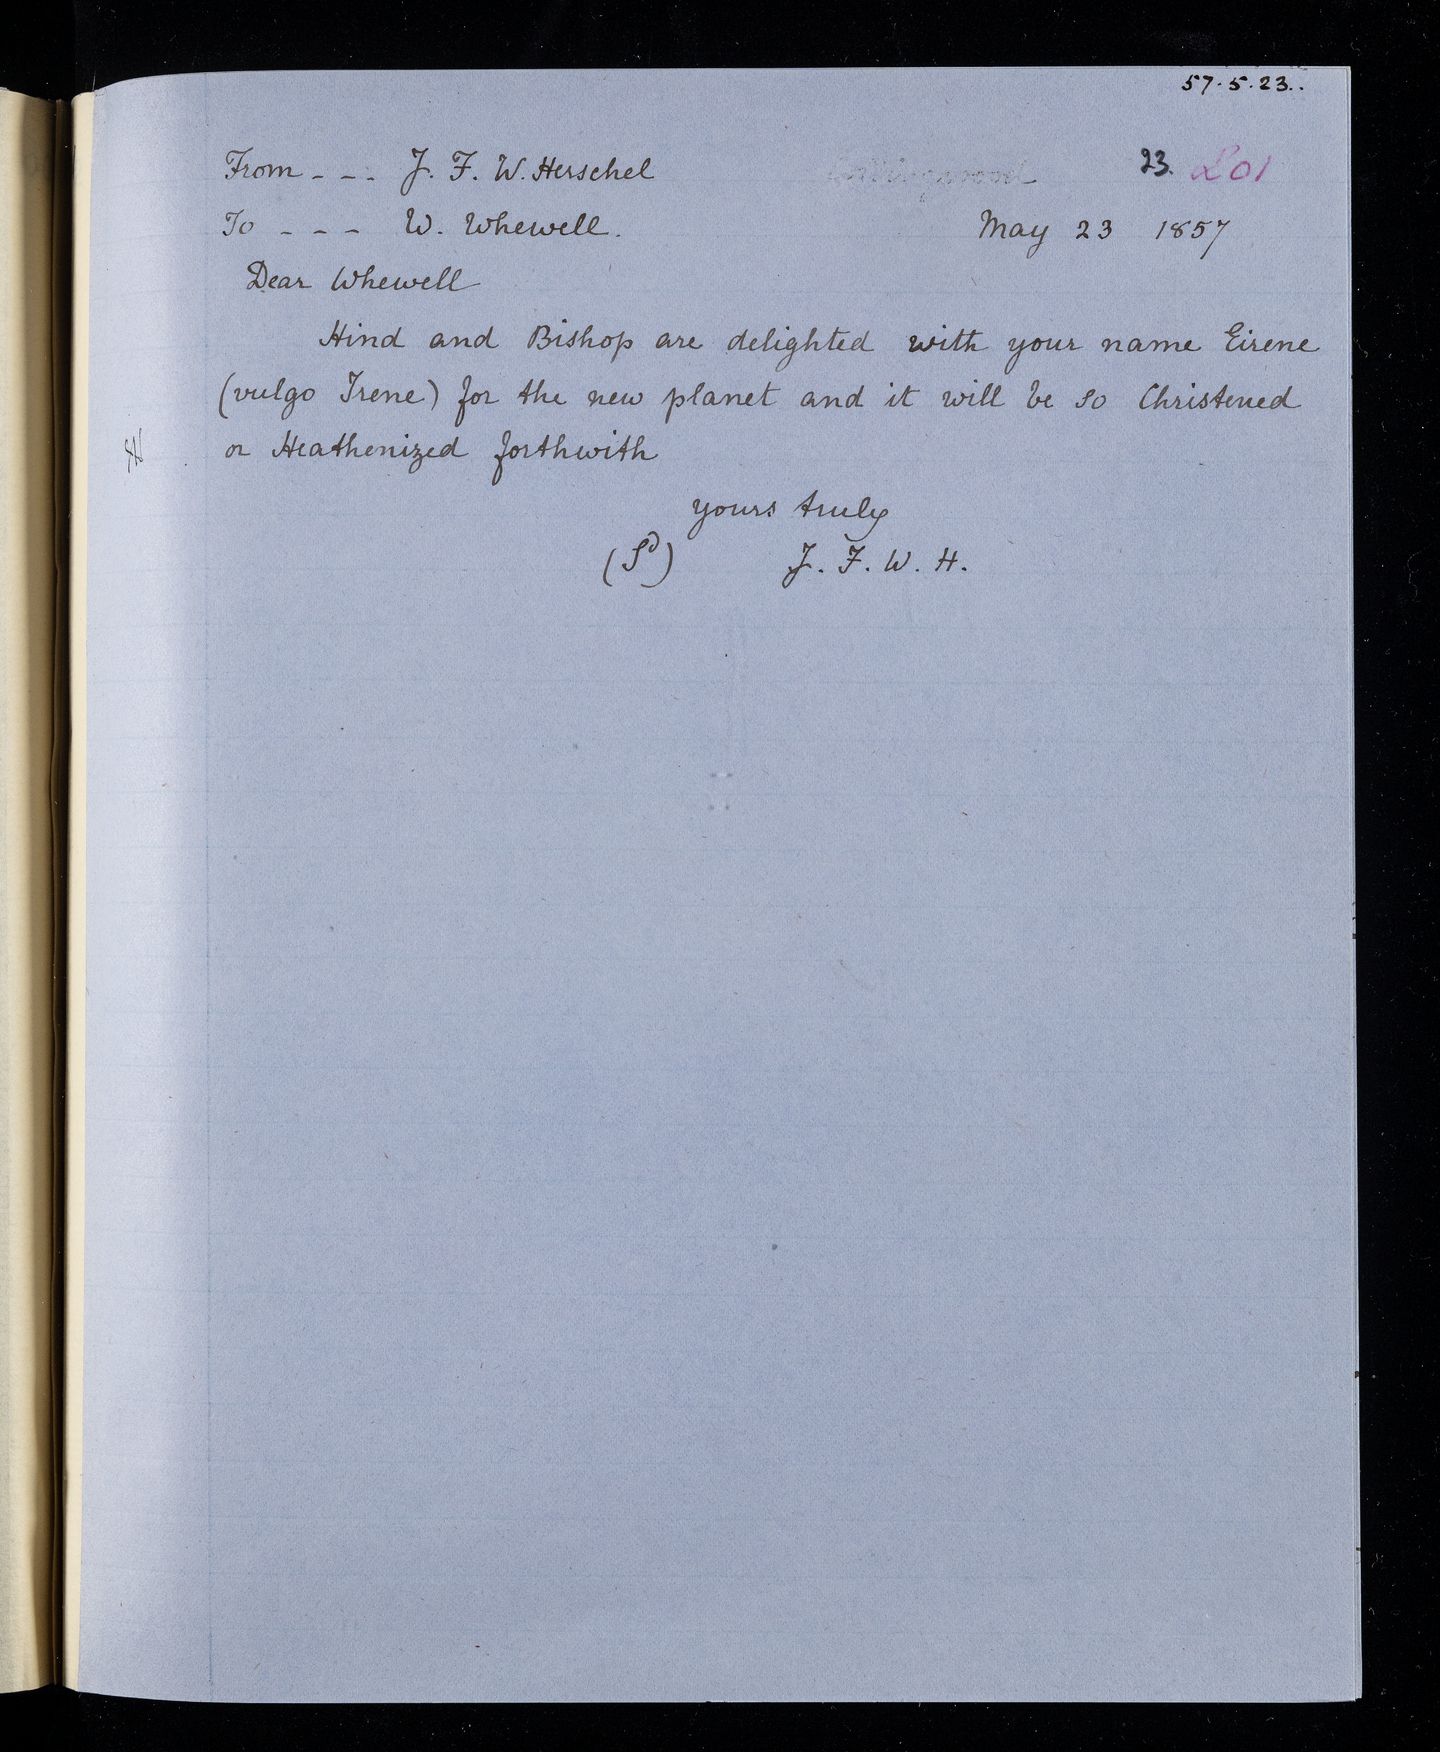 57.5.23..
23. L01
From - - - J. F. W. Herschel
Collingwood
To - - - W. Whewell.
May 23 1857
Dear Whewell
Hind and Bishop are delighted with your name Eirene
(vulgo Irene) for the new planet and it will be so Christened
or Heathenized forthwith
yours truly
(Sd) J. F. W. H.